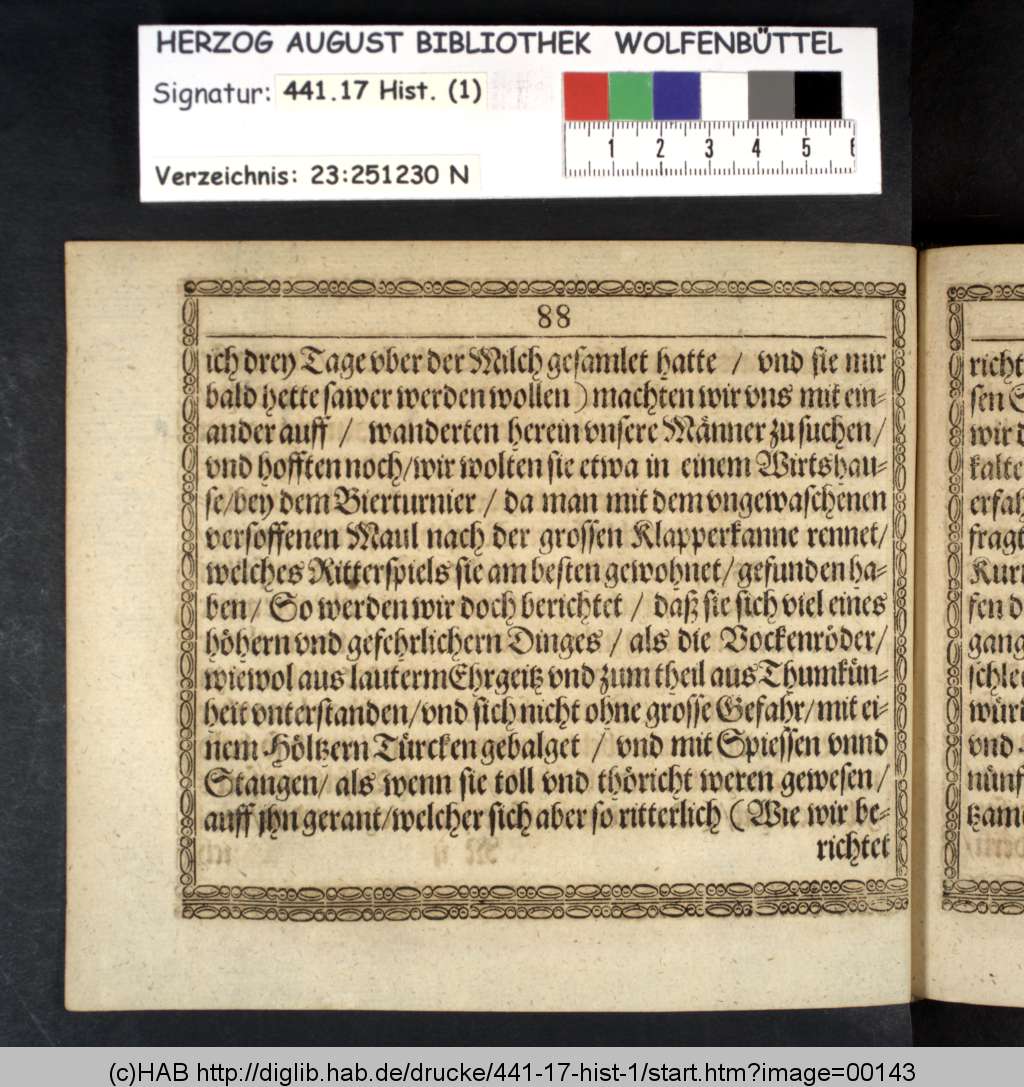 HERZOG AUGUST BIBLIOTHEK WOLFENBÜTTEL
Signatur: 441.17 Hist. (1)
1 2 3 4 5 6
Verzeichnis: 23:251230 N
88
ich drey Tage vber der Milch gesamlet hatte / vnd sie nur
bald hette sawer werden wollen) machten wir vns mit ein-
ander auff / wanderten herein vnsere Männer zu suchen/
vnd hofften noch/wir wolten sie etwa in einem Wirtshau-
se/bey dem Bierturnier / da man mit dem vngewaschenen
versoffenen Maul nach der grossen Klapperkanne rennet/
welches Ritterspiels sie am besten gewohnet/gefunden ha-
ben/ So werden wir doch berichtet / daß sie sich viel eines
höhern vnd gefehrlichern Dinges / als die Bockenröder/
wiewol aus lauterm Ehrgeitz vnd zum theil aus Thumkün-
heit vnterstanden/vnd sich nicht ohne grosse Gefahr/mit ei-
nem Höltzern Türcken gebalget / vnd mit Spiessen vnnd
Stangen/ als wenn sie toll vnd thöricht weren gewesen/
auff jhn gerant/welcher sich aber so ritterlich (Wie wir be-
richtet
richt
sen
wir
kalte
erfah
fragt
Kur
fen
gang
schle
würd
vnd
nünf
tzam
(c)HAB http://diglib.hab.de/drucke/441-17-hist-1/start.htm?image=00143